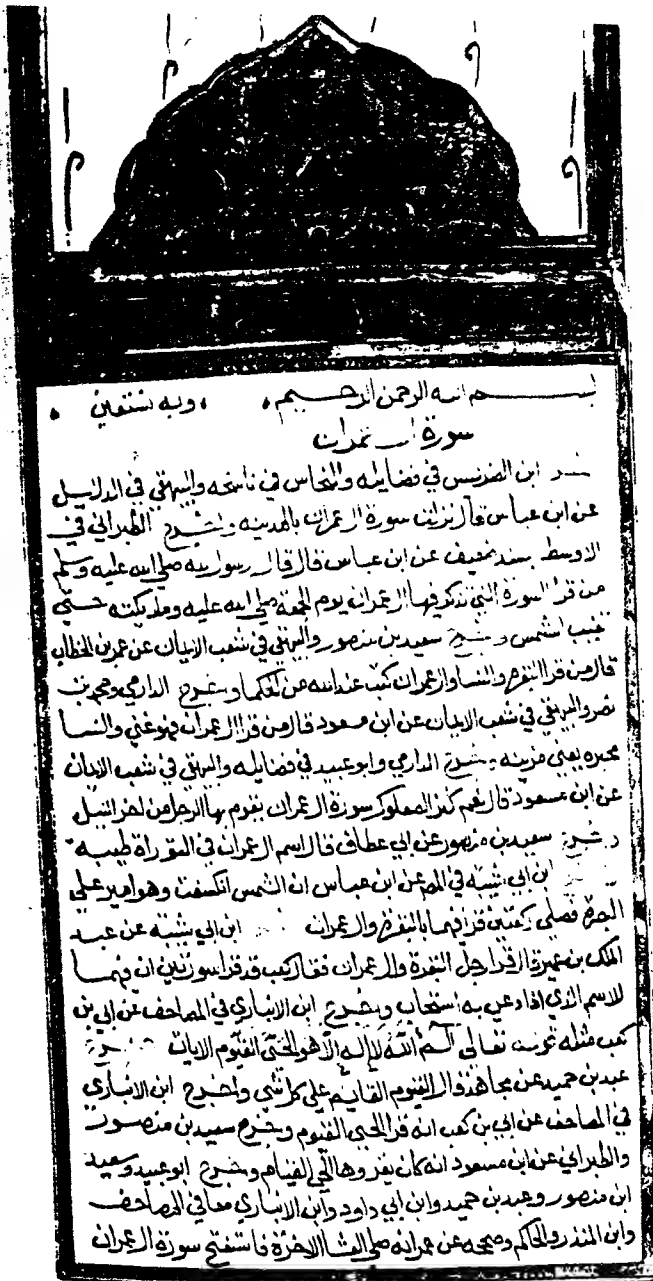 بسم الله الرحمن الرحيم وبه نستعين
سورة ال عمران
ابن الضريس في فضايله والنحاس في ناسخه والبيهقي في الدلايل
عن ابن عباس قال نزلت سورة ال عمران بالمدينه واخرج الطبراني في
الاوسط بسند ضعيف عن ابن عباس قال قال رسول الله صلى الله عليه وسلم
من قرا السورة التي يذكر فيها ال عمران يوم الجمعة صلى الله عليه وملايكته حتى
تغيب الشمس واخرج سعيد بن منصور والبيهقي في شعب الايمان عن عمر بن الخطاب
قال من قرا البقرة والنسا وال عمران كتب عند الله من الحكما واخرج الدارمي ومحمد بن
نصر والبيهقي في شعب الايمان عن ابن مسعود قال من قرا ال عمران فهو غني والنسا
محبره يعني مزينه واخرج الدارمي وابو عبيد في فضايله والبيهقي في شعب الايمان
عن ابن مسعود قال نعم كنز الصعلوك سورة ال عمران يقوم بها الرجل من اخر الليل
واخرج سعيد بن منصور عن ابي عطاف قال اسم ال عمران في التوراة طيبه
ابن ابي شيبه في المص عن ابن عباس ان الشمس انكسفت وهو امير على
البصرة فصلى ركعتين قرا فيهما بالبقرة وال عمران ابن ابي شيبه عن عبد
الملك بن عميرة قال قرا رجل البقرة وال عمران فقال كعب قد قرا سورتين ان فيهما
للاسم الذي اذا دعي به استجاب واخرج ابن الانباري في المصاحف عن ابي بن
كعب مثله قوله تعالى الٓمٓ اللّٰه لا اله الا هو الحي القيوم الايات
عبد بن حميد عن مجاهد قال القيوم القايم على كل شي واخرج ابن الانباري
في المصاحف عن ابي بن كعب انه قرا الحي القيوم واخرج سعيد بن منصور
والطبراني عن ابن مسعود انه كان يقروها الحي القيام واخرج ابو عبيد وسعيد
ابن منصور وعبد بن حميد وابن ابي داود وابن الانباري معا في المصاحف
وابن المنذر والحاكم وصححه عن عمر انه صلى العشا الاخرة فاستفتح سورة ال عمران